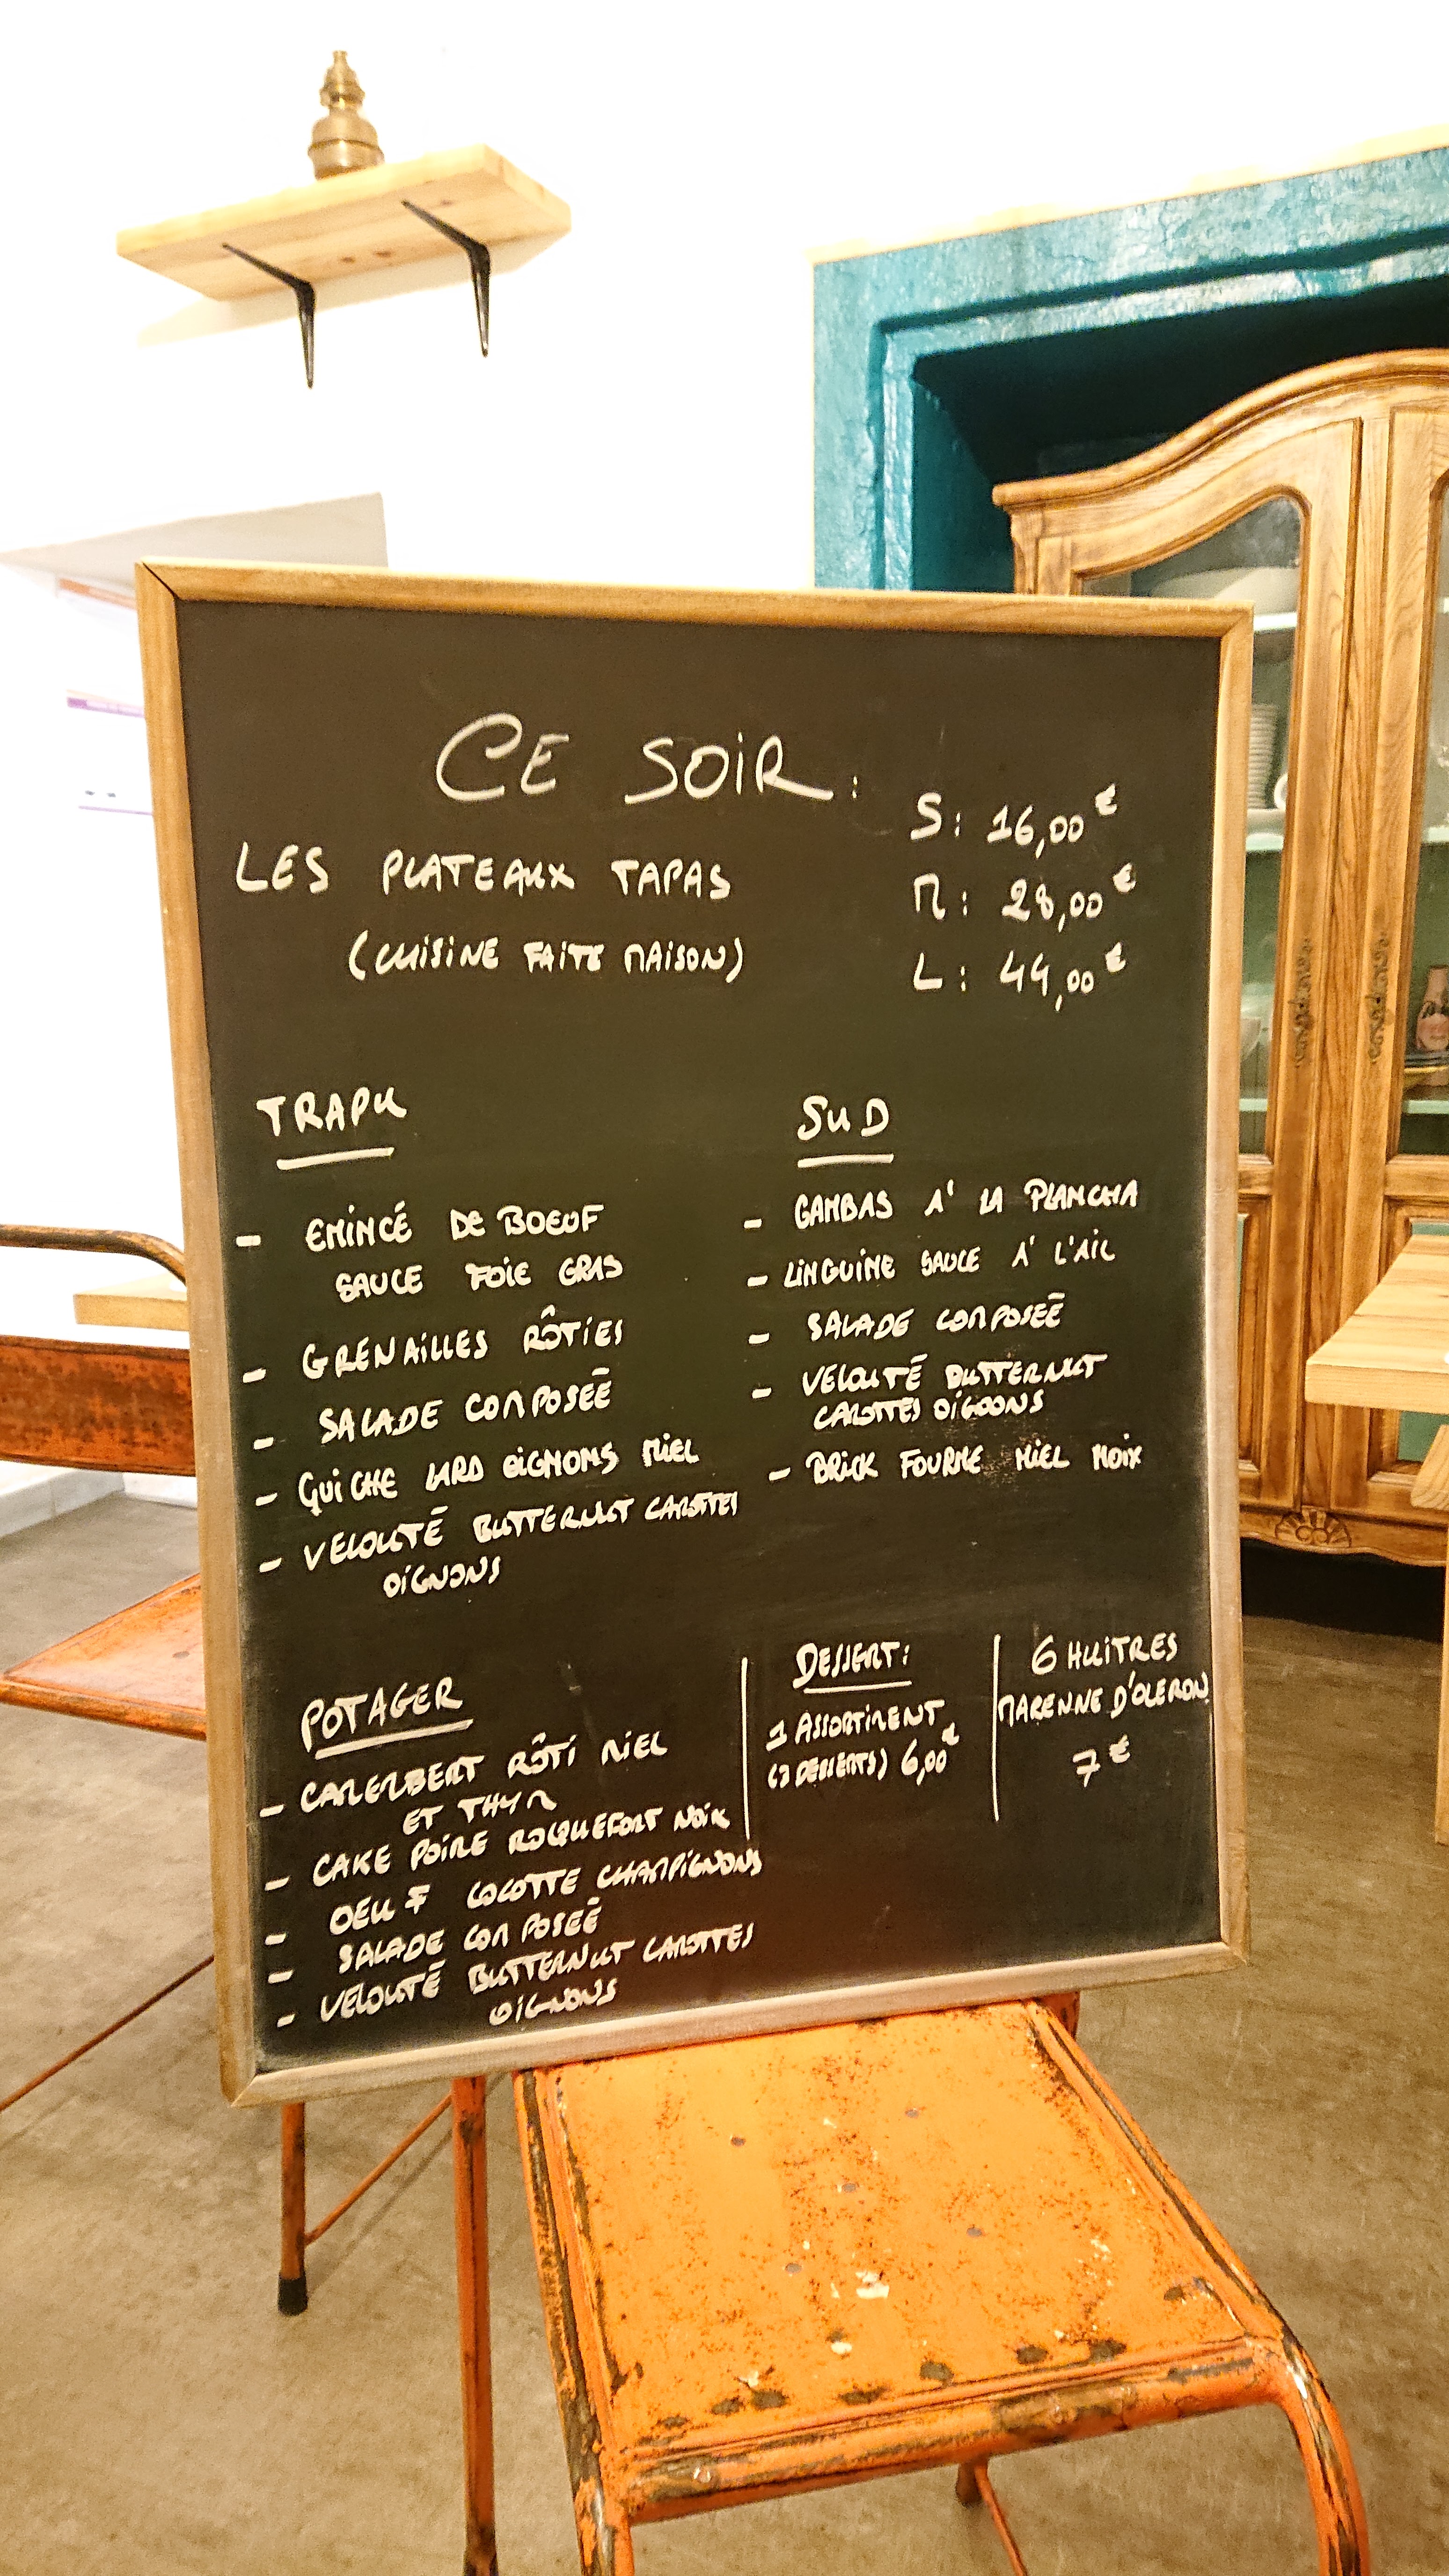 CE SOIR :
LES PLATEAUX TAPAS
(CUISINE FAITE MAISON)
S : 16,00 €
M : 28,00 €
L : 44,00 €
TRAPU
- EMINCÉ DE BOEUF
SAUCE FOIE GRAS
- GRENAILLES RÔTIES
- SALADE COMPOSEÉ
- QUICHE LARD OIGNONS MIEL
- VELOUTÉ BUTTERNUT CAROTTES
OIGNONS
SUD
- GAMBAS A' LA PLANCHA
- LINGUINE SAUCE A' L'AIL
- SALADE COMPOSEÉ
- VELOUTÉ BUTTERNUT
CAROTTES OIGOONS
- BRICK FOURME MIEL NOIX
POTAGER
- CAMEMBERT RÔTI MIEL
ET THYM
- CAKE POIRE ROQUEFORT NOIX
- OEUF COCOTTE CHAMPIGNONS
- SALADE COMPOSEÉ
- VELOUTÉ BUTTERNUT CAROTTES
OIGNONS
DESSERT :
1 ASSORTIMENT
(3 DESSERTS) 6,00 €
6 HUITRES
MARENNE D'OLERON
7 €